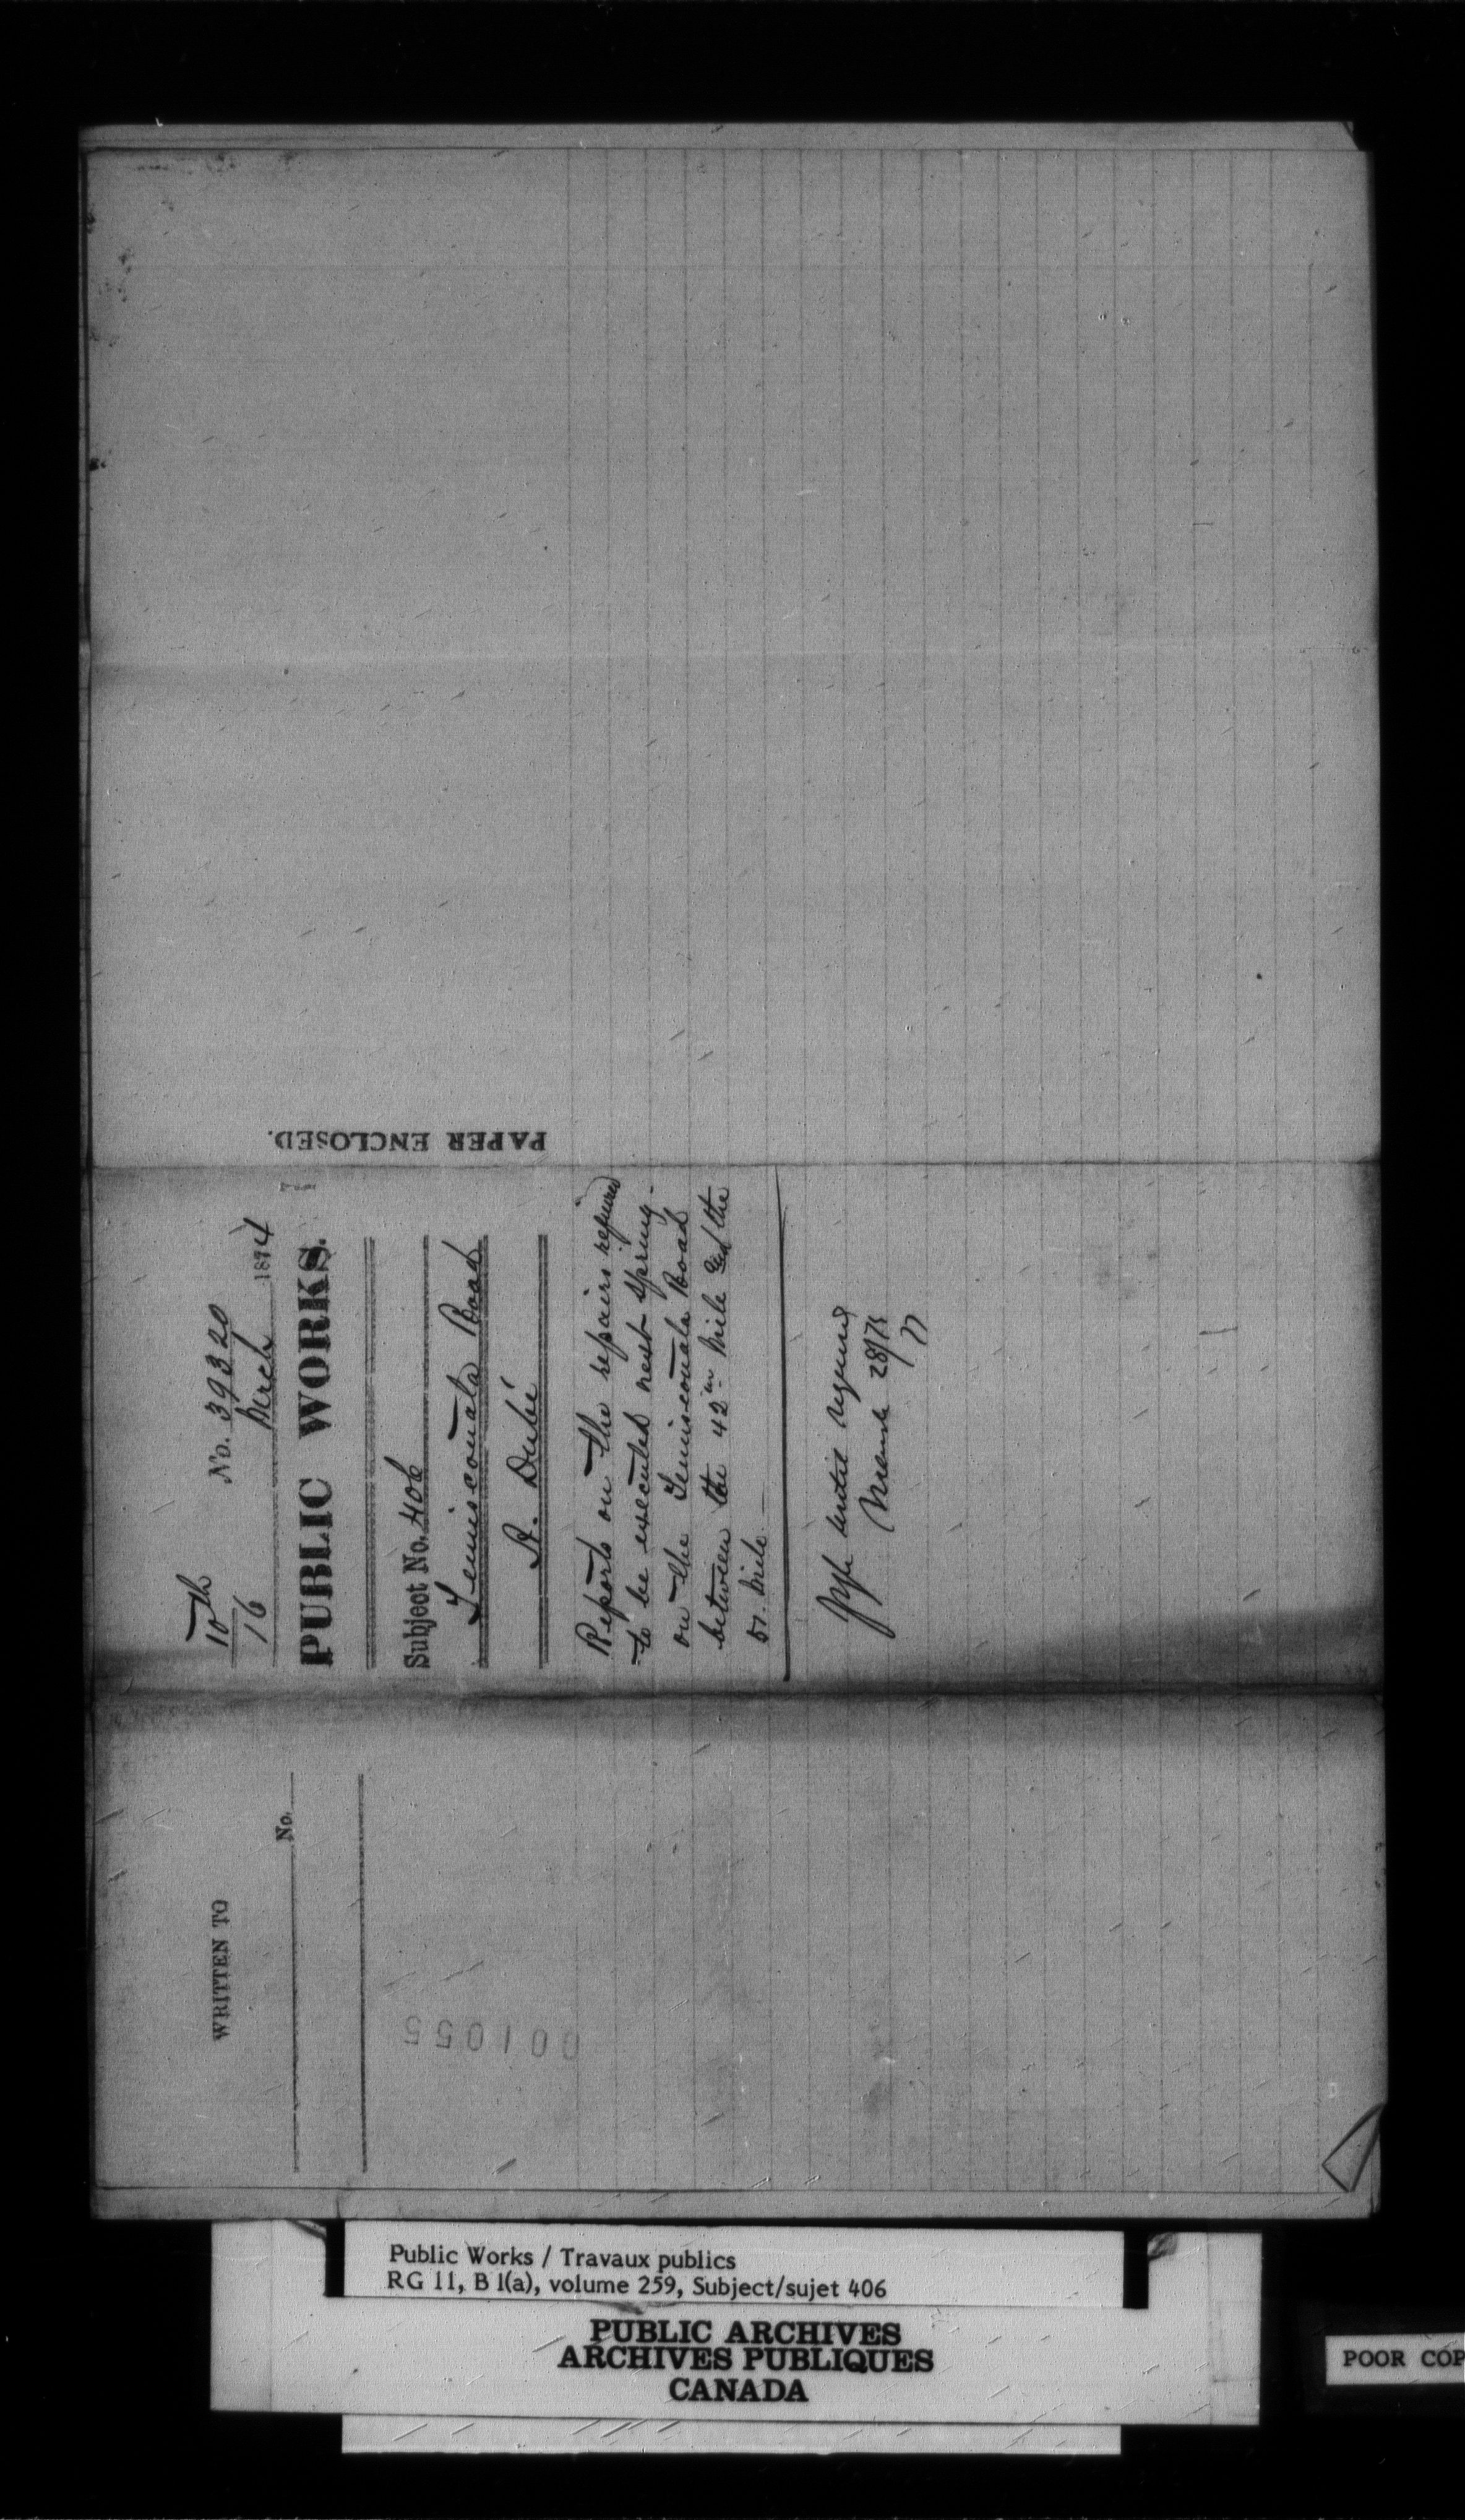 PAPER ENCLOSED.
10th
16
No. 39320
March 1874
PUBLIC WORKS.
Subject No. 406
Temiscouata Road
D. Dubé
Reports on the repairs required
to be executed next Spring
on the Temiscouata Road
between the 42 Mile and the
51. Mile
until required
March 28/74
WRITTEN TO
No.
001055
Public Works / Travaux publics
RG 11, B 1(a), volume 259, Subject/sujet 406
PUBLIC ARCHIVES
ARCHIVES PUBLIQUES
CANADA
POOR COP